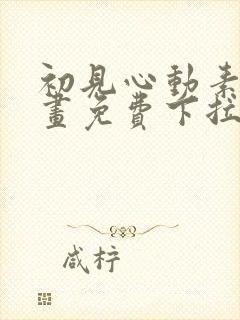 初見心動素
畫免費下拉
咸柠